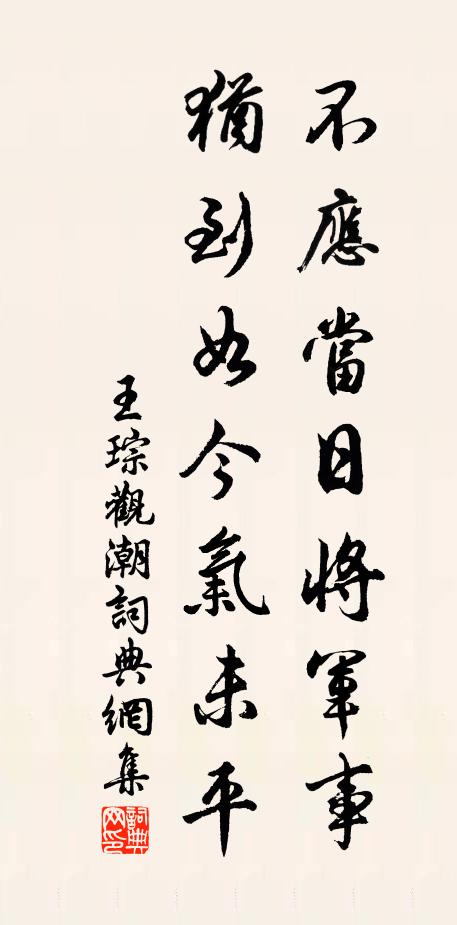 不應當日將軍事
猶到如今氣未平
王琮觀潮詞典網集
詞典網印